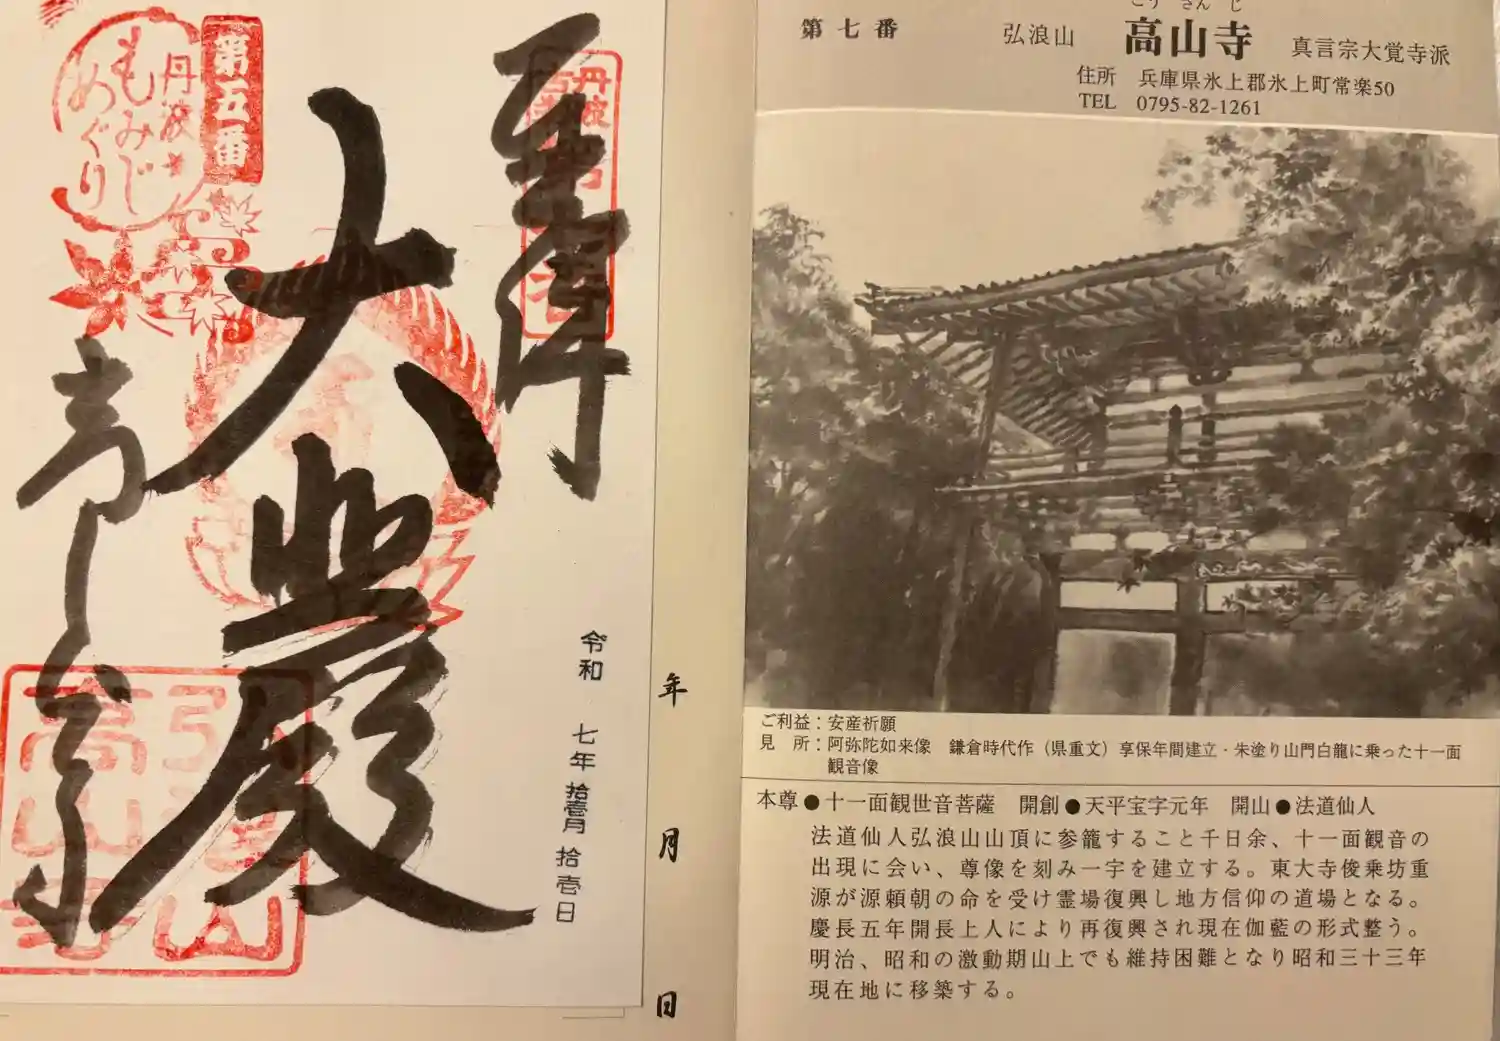 奉拝
大悲殿
高山寺
第五番
丹波
もみじ
めぐり
令和 七年 拾壹月 拾壱日
年 月 日
こうさんじ
第七番 弘浪山 高山寺 真言宗大覚寺派
住所 兵庫県氷上郡氷上町常楽50
TEL 0795-82-1261
ご利益：安産祈願
見 所：阿弥陀如来像 鎌倉時代作（県重文）享保年間建立・朱塗り山門白龍に乗った十一面
観音像
本尊●十一面観世音菩薩 開創●天平宝字元年 開山●法道仙人
法道仙人弘浪山山頂に参籠すること千日余、十一面観音の
出現に会い、尊像を刻み一宇を建立する。東大寺俊乗坊重
源が源頼朝の命を受け霊場復興し地方信仰の道場となる。
慶長五年開長上人により再復興され現在伽藍の形式整う。
明治、昭和の激動期山上でも維持困難となり昭和三十三年
現在地に移築する。